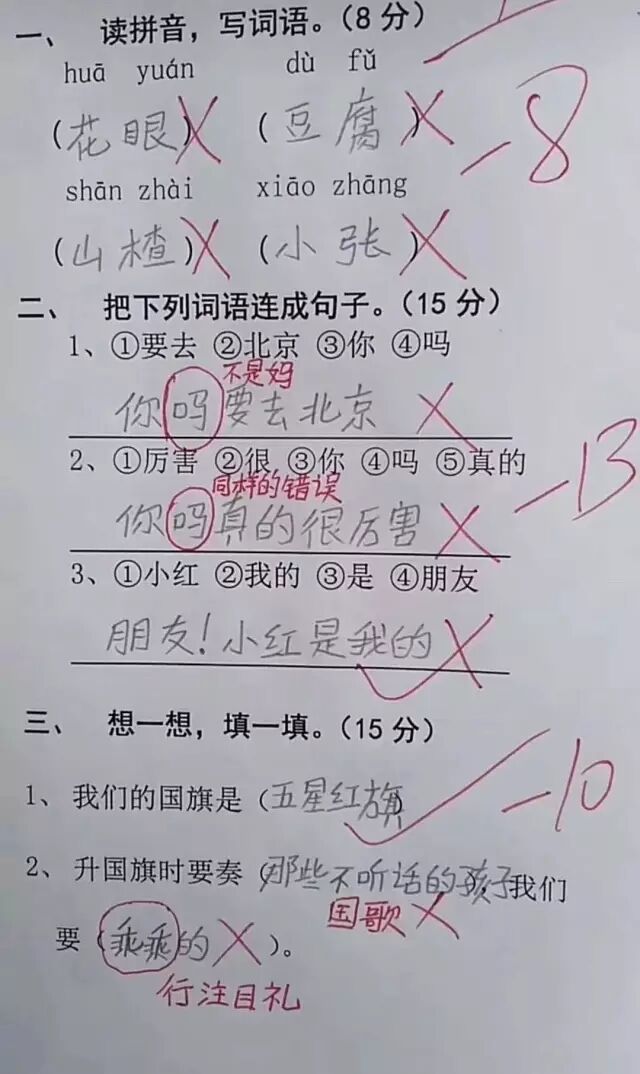 一、 读拼音，写词语。（8分）
huā yuán dù fǔ
（花眼）（豆腐）
-8
shān zhài xiāo zhāng
（山楂）（小张）
二、 把下列词语连成句子。（15分）
1、①要去 ②北京 ③你 ④吗
不是妈
你吗要去北京
2、①厉害 ②很 ③你 ④吗 ⑤真的
同样的错误
-13
你吗真的很厉害
3、①小红 ②我的 ③是 ④朋友
朋友！小红是我的
三、 想一想，填一填。（15分）
1、我们的国旗是（五星红旗）
-10
2、升国旗时要奏（那些不听话的孩子），我们
国歌
要（乖乖的）。
行注目礼